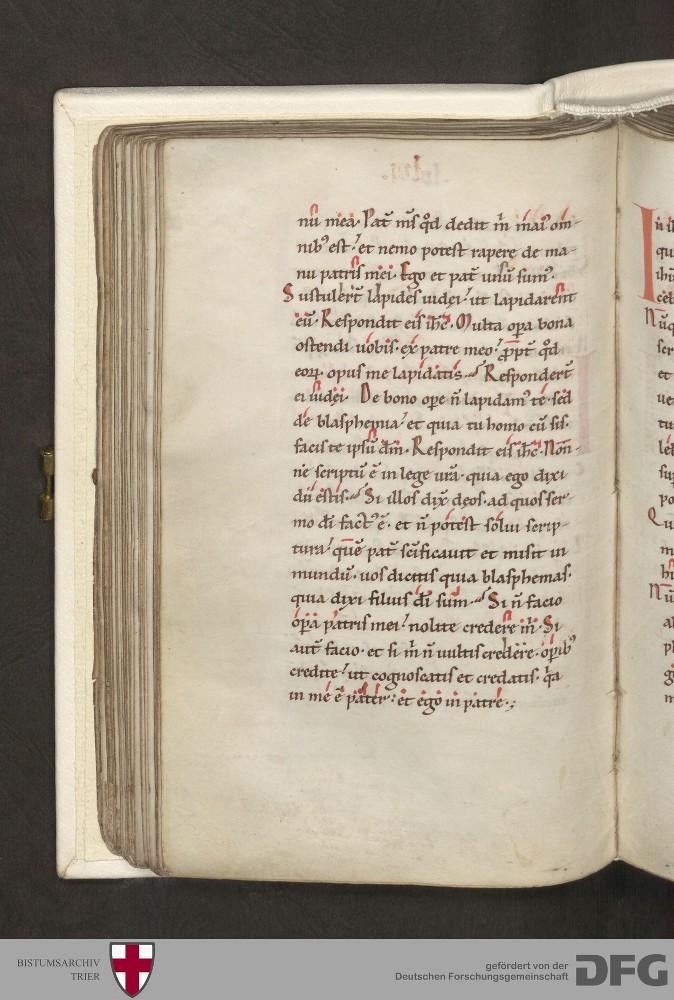 nū mea. Pat̄ m̄s qd̄ dedit m̄ mai᷒ om-
nib᷒ est. et nemo potest rapere de ma-
nu patris mei. Ego et pat̄ unū sum᷒.
Sustuler̄t lapides iudęi. ut lapidarent
eū. Respondit eis ih̄c. Multa opa bona
ostendi uobis ex patre meo. ꝓpt̄ qd̄
eoꝝ opus me lapidatis. Respondert̄
ei iudęi. De bono ope n̄ lapidam᷒ te. sed
de blasphemia. et quia tu homo cū sis.
facis te ipsū dm̄. Respondit eis ih̄c. Non-
ne scriptū ē in lege ur̄a. quia ego dixi
dii estis. Si illos dix̄ deos. ad quos ser-
mo dī fact᷒ ē. et n̄ potest solui scrip-
tura. quē pat̄ sc̄ificauit et misit in
mundū. uos dicitis quia blasphemas.
quia dixi filius dī sum. Si n̄ facio
opa patris mei. nolite credere m̄. Si
aut̄ facio. et si m̄ n̄ uultis credere. opib᷒
credite. ut cognoscatis et credatis. qa
in me ē pater. et ego in patre.
BISTUMSARCHIV
TRIER
gefördert von der
Deutschen Forschungsgemeinschaft
DFG